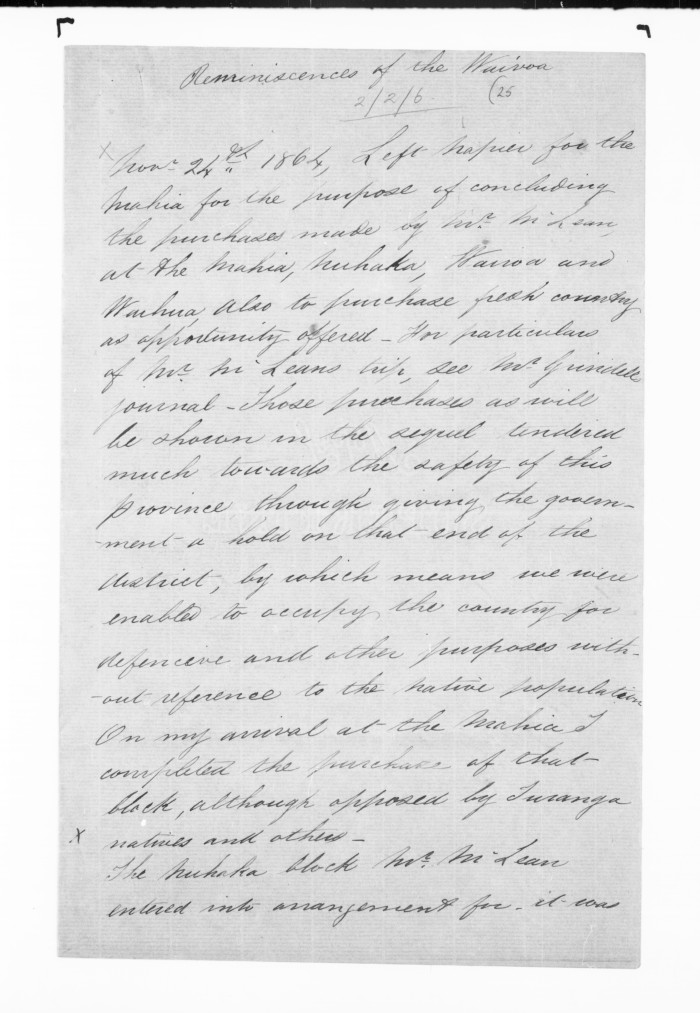 Reminiscences of the Wairoa
2/2/6 (25
x Novr. 24th 1864, Left Napier for the
Mahia for the purpose of concluding
the purchases made by Mr. McLean,
at the Mahia, Nuhaka, Wairoa and
Waihua, Also to purchase fresh country
as opportunity offered - For particulars
of Mr. McLeans trip, see Mr. Grindell
journal - Those purchases as will
be shown in the sequel tendered
much towards the safety of this
province through giving the govern-
-ment a hold on that end of the
district, by which means we were
enabled to occupy the country for
defencive and other purposes with-
-out reference to the native population
On my arrival at the Mahia I
completed the purchase of that
block, although opposed by Turanga
x natives and others -
The Nuhaka block Mr. McLean
entered into arrangement for - it was